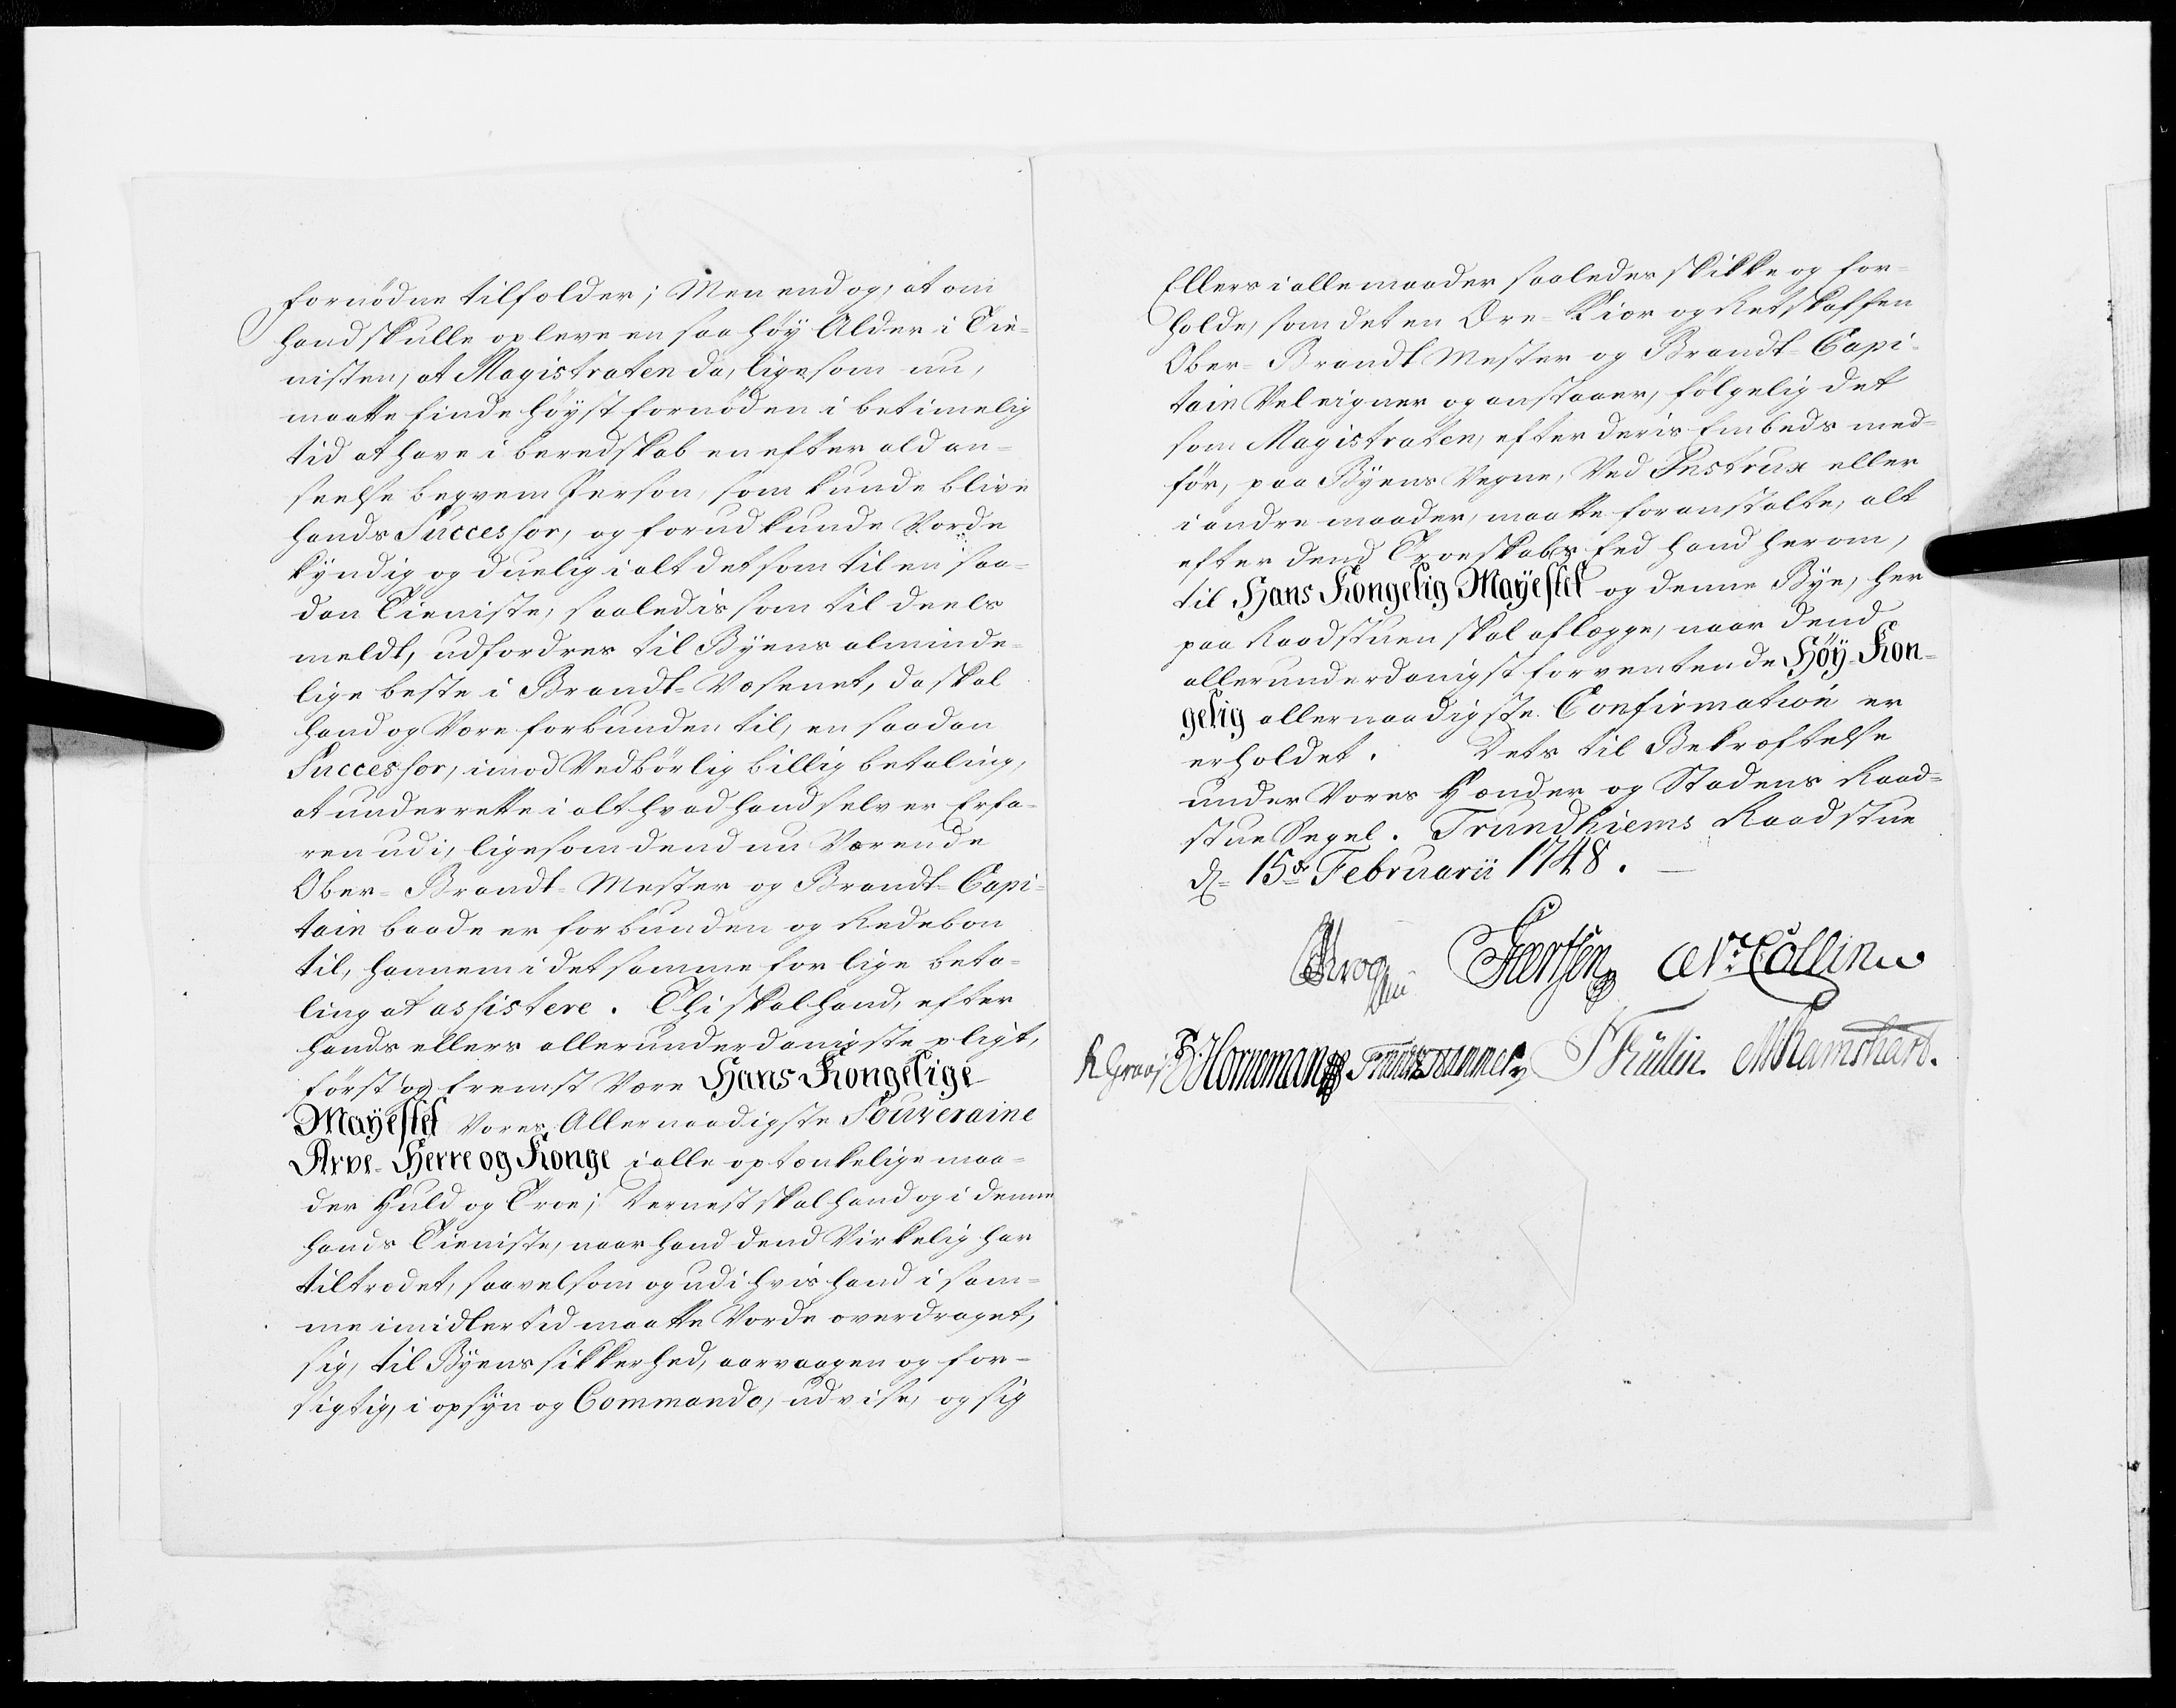 fornødne tilfolder; Men end og, at om
hand skulle opleve en saa høÿ Alder i Tie-
nisten, at Magistraten da, ligesom nu,
maatte finde høÿst fornøden i betimelig
tid at have i beredskab en efter ald an-
seelse beqvem Person, som kunde blive
hands Successor, og forud kunde Vorde
kÿndig og duelig i alt det som til en saa-
dan Tieniste, saaledis som til deels
meldt, udfordres til Bÿens alminde-
lige beste i Brandt-Væsenet, da skal
hand og Være forbunden til, en saadan
Successor, imod Vedbørlig billig betaling,
at underrette i alt hvad hand selv er Erfa-
ren udi, ligesom dend nu Værende
Ober-Brandt-Mester og Brandt-Capi-
tain baade er forbunden og Redebon
til, hannem i det samme for lige beta-
ling at assistere. Thi skal hand, efter
hands ellers allerunderdanigste pligt,
først og fremst Være Hans Kongelige
Maÿestet Vores Allernaadigste Souveraine
Arve-Herre og Konge i alle optænkelige maa-
der Huld og Troe; Dernest skal hand og i denne
hands Tieniste, naar hand dend Virkelig har
tiltrædet, saavelsom og udi hvis hand i sam-
me imidlertid maatte Vorde overdraget,
sig, til Bÿens sikkerhed, aarvaagen og for-
sigtig, i opsÿn og Commando, udvise, og sig
Ellers i alle maader saaledes skikke og for-
holde, som det en Ære-Kiær og Retskaffen
Ober-Brandt Mester og Brandt-Capi-
tain Vel eigner og anstaaer, følgelig det
som Magistraten, efter deris Embeds med-
før, paa Bÿens Vegne, Ved Instrux eller
i andre maader, maatte foranstalte, alt
efter dend Troeskabs Eed hand herom,
til Hans Kongelig Maÿestet og denne Bÿe, her
paa Raadstuen skal aflægge, naar dend
allerunderdanigst forventende Høÿ-Kon-
gelig allernaadigste Confirmation er
erholdet. Dets til Bekræftelse
under Vores Hænder og Stadens Raad-
stue Segel. Trundhiems Raadstue
d 15de Februarii 1748.
Krog Hersen Collin
Hornemann Hammer Kullin MRamshart.